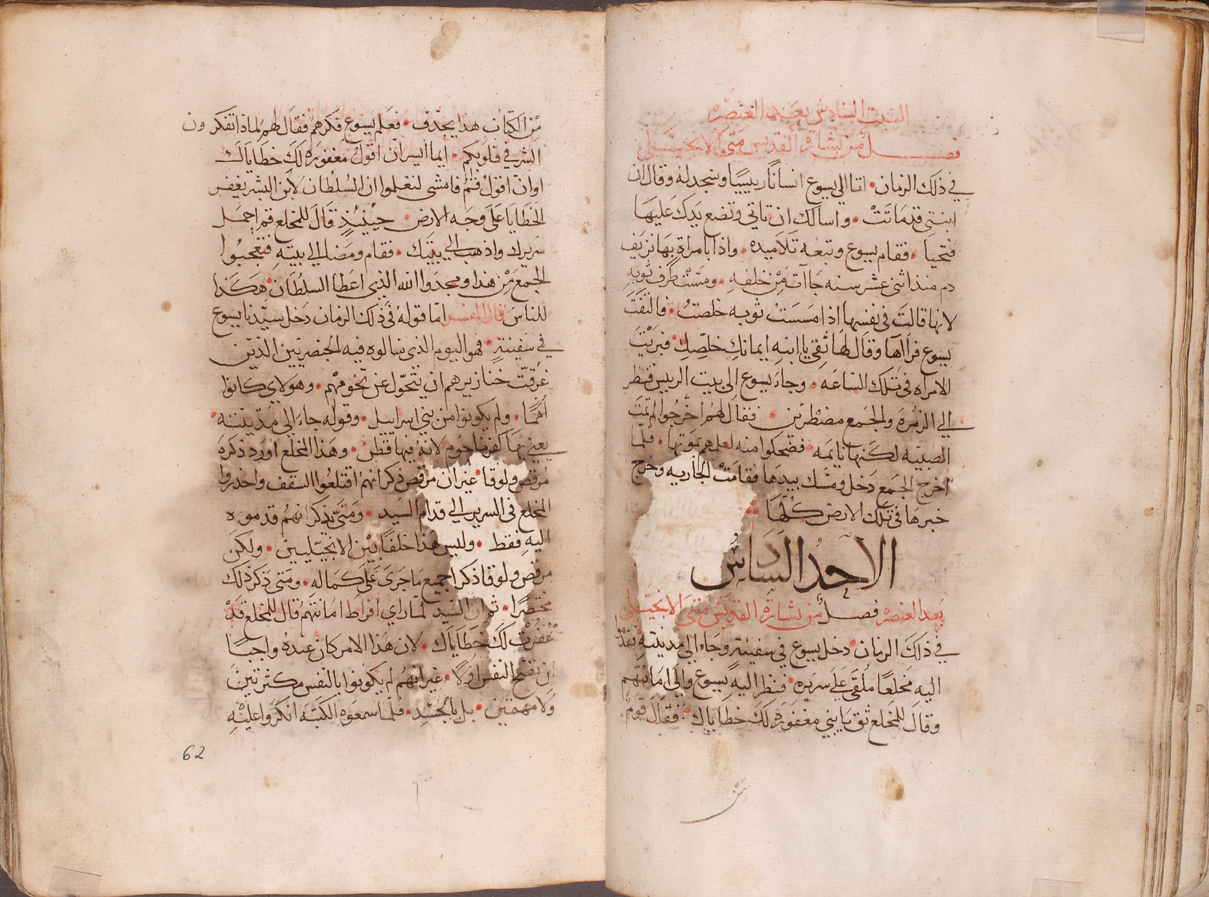 السبت السادس بعد العنصره
فصل من بشارة القديس متى الانجيلي
في ذلك الزمان اتا الي يسوع انسانًا رييسيًا وسجد له وقال ان
ابنتي قد ماتت واسالك ان تاتي وتضع يدك عليها
فتحيا فقام يسوع وتبعه تلاميده واذا بامراة بها نزيف
دم مند اثني عشر سنه جاآت من خلفه ومست طرف ثوبه
لانها قالت في نفسها اذا مسست ثوبه خلصت فالتفت
يسوع فرآلها وقال لها ثقي يا ابنه ايمانك خلصك فبريت
الامراه في تلك الساعه وجاء يسوع الى بيت الرييس فنظر
الي الزمرة والجمع مضطربين فقال لهم اخرجوا لم تمت
الصبيه لكنها نايمه فضحكوا منه لعلمهم بموتها فلما
اخرج الجمع دخل ومسك بيدها فقامت الجاريه وخرج
خبرها في تلك الارض كلها
الاحد السادس
بعد العنصره فصل من بشارة القديس متى الانجيلي
في ذلك الزمان دخل يسوع في سفينة وجاء الى مدينته فقدموا
اليه مخلعًا ملقى على سريره فنظر اليه يسوع والى امانتهم
وقال للمخلع ثق يا بني مغفورة لك خطاياك فقال قوم
من
من الكتاب هدا يجدف فعلم يسوع فكرهم فقال لهم لماذا تفكرون
الشر في قلوبكم ايما ايسر ان اقول مغفورة لك خطاياك
اوان اقول قم فامشي لتعلموا ان السلطان لابن البشر يغفر
الخطايا على وجه الارض حينيذ قال للمخلع قم احمل
سريرك واذهب الي بيتك فقام ومضا الي بيته فتعجبوا
الجمع من هدا ومجدوا الله الذي اعطا السلطان هكذا
للناس قال المفسر اما قوله في ذلك الزمان دخل سيدنا يسوع
في سفينة فهو اليوم الذي سالوه فيه الجرجسيين الذين
غرقت خنازيرهم ان يتحول عن تخومهم وهولاي كانوا
امما ولم يكونوا من بني اسراييل وقوله جاء الى مدينته
يعني بها كفرناحوم لانه فيها قطن وهذا المخلع اورد ذكره
مرقص ولوقا غير ان مرقص ذكر انهم اقتلعوا السقف واحدروا
المخلع في السرير الي قدام السيد ومتى ذكر انهم قدموه
اليه فقط وليس هذا خلفًا بين الانجيليين ولكن
مرقص ولوقا ذكرا جميع ما جرى على كماله ومتى ذكر ذلك
مختصرًا ثم ان السيد لما راي افراط امانتهم قال للمخلع قد
غفرت لك خطاياك لان هذا الامر كان عنده واجبًا
ان تصح النفس اولًا غير انهم لم يكونوا بالنفس مكترثين
ولا مهتمين بل بالجسد فلما سمعوه الكتبه انكروا عليه
62